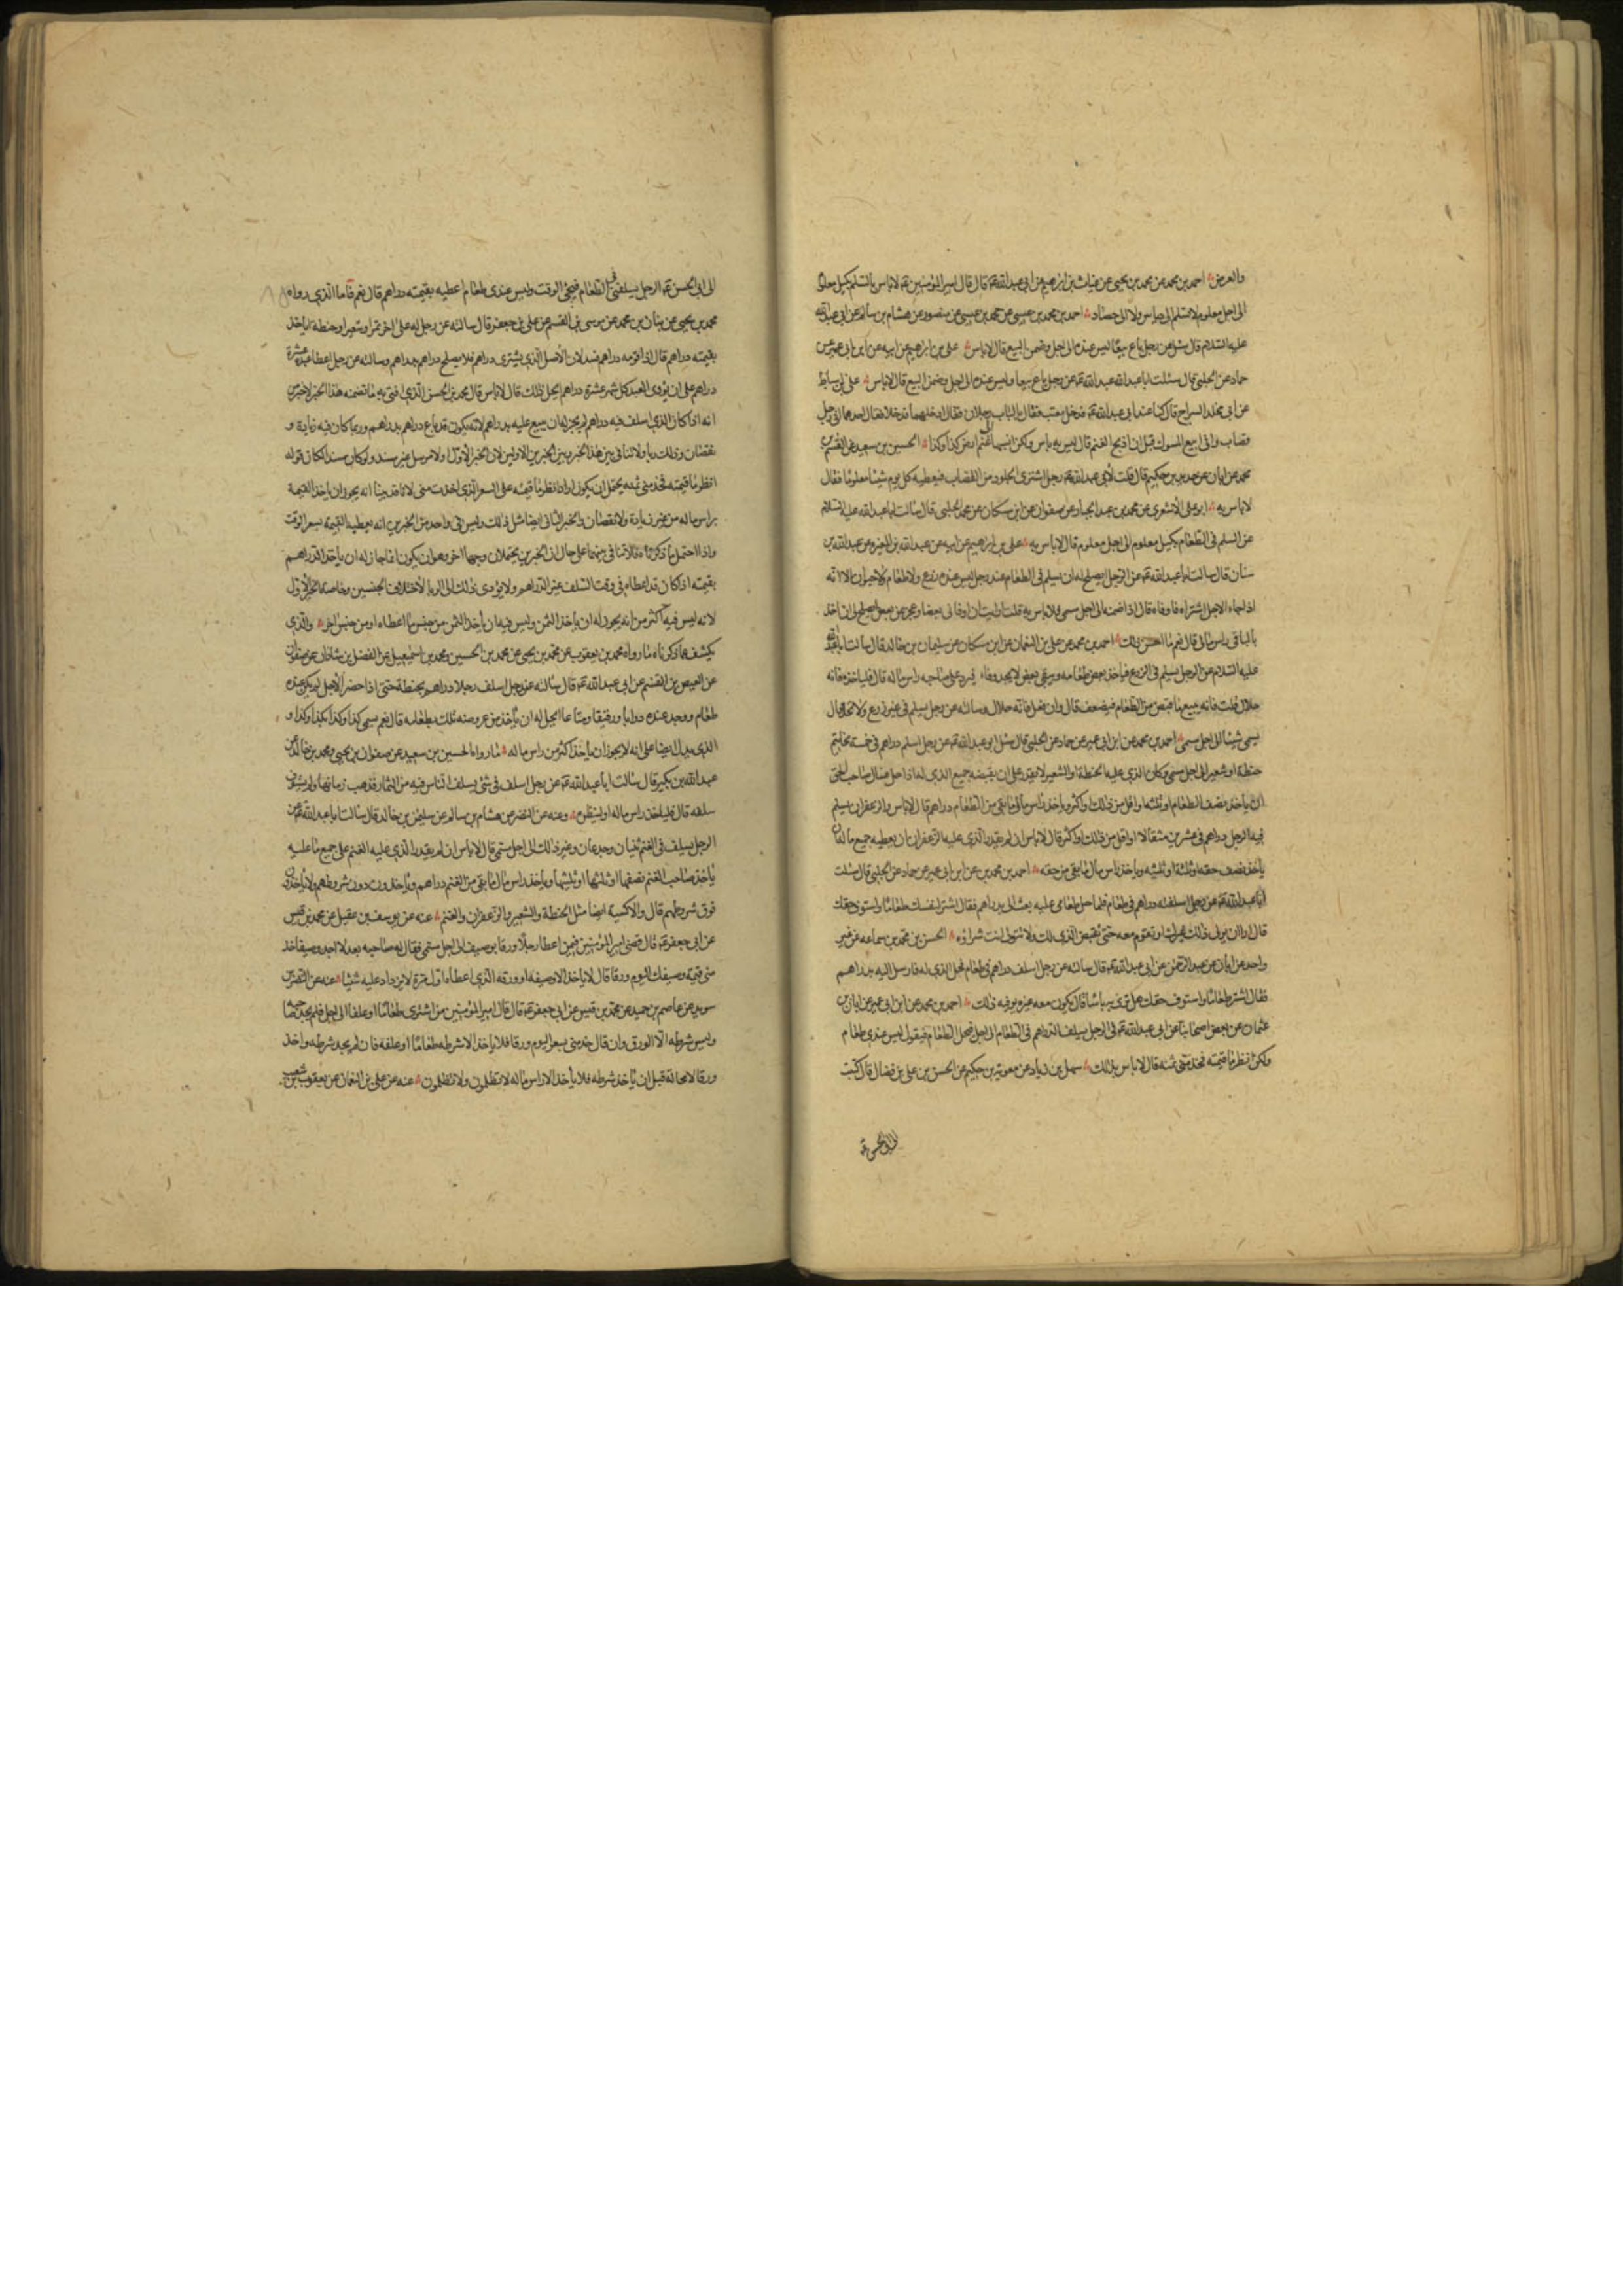 والعرض احمد بن محمد عن محمد بن يحيى عن غياث بن ابراهيم عن ابي عبدالله ع قال قال امير المؤمنين ع لا باس بالسلم بكيل معلوم
الى اجل معلوم لا تسلم الى دياس ولا الى حصاد احمد بن محمد بن عيسى عن محمد بن عيسى عن منصور عن هشام بن سالم عن ابي عبدالله
عليه السلام قال سئل عن رجل باع بيعا ليس عنده الى اجل وضمن البيع قال لا باس علي بن ابراهيم عن ابيه عن ابن ابي عمير عن
حماد عن الحلبي قال سئلت ابا عبدالله ع عن رجل باع بيعا وليس عنده الى اجل وضمن البيع قال لا باس علي بن اسباط
عن ابي مخلد السراج قال كنا عند ابي عبدالله ع فدخل معتب فقال بالباب رجلان فقال ادخلهما فدخلا فقال احدهما اني رجل
قصاب واني ابيع المسوك قبل ان اذبح الغنم قال ليس به باس ولكن انسبها غنم ارض كذا وكذا الحسين بن سعيد عن القسم بن
محمد عن ابان عن حديد بن حكيم قال قلت لابي عبدالله ع رجل اشترى الجلود من القصاب فيعطيه كل يوم شيئا معلوما فقال
لا باس به ابو علي الاشعري عن محمد بن عبد الجبار عن صفوان عن ابن مسكان عن محمد الحلبي قال سالت ابا عبدالله عليه السلام
عن السلم في الطعام بكيل معلوم الى اجل معلوم قال لا باس به علي بن ابراهيم عن ابيه عن عبدالله بن المغيرة عن عبدالله بن
سنان قال سالت ابا عبدالله ع عن الرجل ايصلح له ان يسلم في الطعام عند رجل ليس عنده زرع ولا طعام ولا حيوان الا انه
اذا جاء الاجل اشتراه فاوفاه قال اذا ضمنه الى اجل مسمى فلا باس به قلت ارايت ان اوفاني بعضا وعجز عن بعض ايصلح لي ان اخذ
بالباقي راس مالي قال نعم ما احسن ذلك احمد بن محمد عن علي بن النعمان عن ابن مسكان عن سليمان بن خالد قال سالت ابا عبدالله
عليه السلام عن الرجل يسلم في الزرع فياخذ بعض طعامه ويبقى بعض لا يجد وفاء فيرد على صاحبه راس ماله قال فلياخذه فانه
حلال قلت فانه يبيع ما قبض من الطعام فيضعف قال وان فعل فانه حلال وسالته عن رجل يسلم في غير زرع ولا نخل قال
يسمى شيئا الى اجل مسمى احمد بن محمد عن ابن ابي عمير عن حماد عن الحلبي قال سئل ابو عبدالله ع عن رجل اسلم دراهم في خمسة مخاتيم
حنطة او شعير الى اجل مسمى وكان الذي عليه الحنطة او الشعير لا يقدر على ان يقبضه جميع الذي له اذا حل فسال صاحب الحق
ان ياخذ نصف الطعام او ثلثه او اقل من ذلك او اكثر وياخذ راس مال ما بقي من الطعام دراهم قال لا باس والزعفران يسلم
فيه الرجل دراهم في عشرين مثقالا او اقل من ذلك او اكثر قال لا باس ان لم يقدر الذي عليه الزعفران ان يعطيه جميع ماله ان
ياخذ نصف حقه او ثلثه او ثلثيه وياخذ راس مال ما بقي من حقه احمد بن محمد عن ابن ابي عمير عن حماد عن الحلبي قال سئلت
ابا عبدالله ع عن رجل اسلفته دراهم في طعام فلما حل طعامي عليه بعث الي بدراهم فقال اشتر لنفسك طعاما واستوف حقك
قال ارى ان يولي ذلك غيرك او تقوم معه حتى تقبض الذي لك ولا تتولى انت شراؤه الحسن بن محمد بن سماعه عن غير
واحد عن ابان عن عبد الرحمن عن ابي عبدالله ع قال سالته عن رجل اسلف دراهم في طعام فحل الذي له فارسل اليه بدراهم
فقال اشتر طعاما واستوف حقك هل ترى به باسا قال يكون معه غيره يوفيه ذلك احمد بن محمد عن ابن ابي عمير عن ابان بن
عثمان عن بعض اصحابنا عن ابي عبدالله ع في الرجل يسلف الدراهم في الطعام الى اجل فيحل الطعام فيقول ليس عندي طعام
ولكن انظر ما قيمته فخذ مني ثمنه قال لا باس بذلك سهل بن زياد عن معوية بن حكيم عن الحسن بن علي بن فضال قال كتبت
الى ابي الحسن ع
الى ابي الحسن ع الرجل يسلفني في الطعام فيجئ الوقت وليس عندي طعام اعطيه بقيمته دراهم قال نعم فاما الذي رواه
محمد بن يحيى عن بنان بن محمد عن موسى بن القسم عن علي بن جعفر قال سالته عن رجل له على اخر تمر او شعير او حنطة اياخذ
بقيمته دراهم قال اذا قومه دراهم فسد لان الاصل الذي يشترى دراهم فلا يصلح دراهم بدراهم وسالته عن رجل اعطا عبده عشرة
دراهم على ان يؤدي العبد كل شهر عشرة دراهم ايحل ذلك قال لا باس قال محمد بن الحسن الذي افتي به ما تضمنه هذا الخبر الاخير من
انه اذا كان الذي اسلف فيه دراهم لم يجز له ان يبيع عليه بدراهم لانه يكون قد باع دراهم بدراهم وربما كان فيه زيادة و
نقصان وذلك ربا ولا تنافي بين هذا الخبر وبين الخبرين الاولين لان الخبر الاول اولا مرسل غير مسند ولو كان مسندا لكان قوله
انظر ما قيمته فخذ مني ثمنه يحتمل ان يكون اراد انظر ما قيمته على السعر الذي اخذت مني لانا قد بينا انه يجوز ان ياخذ القيمة
براس ماله من غير زيادة ولا نقصان والخبر الثاني ايضا مثل ذلك وليس في واحد من الخبرين انه يعطيه القيمة بسعر الوقت
واذا احتمل ما ذكرناه فلا تنافي بينهما على حال ان الخبرين يحتملان وجها اخر وهو ان يكون انما جاز له ان ياخذ الدراهم
بقيمته اذا كان قد اعطاه في وقت السلف غير الدراهم ولا يؤدي ذلك الى الربا لاختلاف الجنسين وخاصة الخبر الاول
لانه ليس فيه اكثر من انه يجوز له ان ياخذ الثمن وليس فيه ان ياخذ الثمن من جنس ما اعطاه او من جنس اخر والذي
يكشف عما ذكرناه ما رواه محمد بن يعقوب عن محمد بن يحيى عن محمد بن الحسين ومحمد بن اسمعيل عن الفضل بن شاذان عن صفوان
عن العيص بن القسم عن ابي عبدالله ع قال سالته عن رجل اسلف رجلا دراهم بحنطة حتى اذا حضر الاجل لم يكن عنده
طعام ووجد عنده دوابا ورقيقا ومتاعا ايحل له ان ياخذ من عروضه تلك بطعامه قال نعم يسمي كذا وكذا بكذا وكذا و
الذي يدل ايضا على انه لا يجوز ان ياخذ اكثر من راس ماله ما رواه الحسين بن سعيد عن صفوان بن يحيى ومحمد بن خالد عن
عبدالله بن بكير قال سالت ابا عبدالله ع عن رجل اسلف في شئ يسلف الناس فيه من الثمار فذهب زمانها ولم يستوف
سلفه قال فلياخذ راس ماله او لينظره وعنه عن النضر عن هشام بن سالم عن سليمن بن خالد قال سالت ابا عبدالله ع عن
الرجل يسلف في الغنم ثنيان وجدعان وغير ذلك الى اجل مسمى قال لا باس ان لم يقدر الذي عليه الغنم على جميع ما عليه
ياخذ صاحب الغنم نصفها او ثلثها او ثلثيها وياخذ راس مال ما بقي من الغنم دراهم وياخذون دون شروطهم ولا ياخذون
فوق شروطهم قال والاكسية ايضا مثل الحنطة والشعير والزعفران والغنم عنه عن يوسف بن عقيل عن محمد بن قيس
عن ابي جعفر ع قال قضى امير المؤمنين فيمن اعطا رجلا ورقا بوصيف الى اجل مسمى فقال له صاحبه بعد لا اجد وصيفا خذ
مني قيمة وصيفك اليوم ورقا قال لا ياخذ الا وصيفه او ورقه الذي اعطاه اول مرة لا يزداد عليه شيئا عنه عن النضر بن
سويد عن عاصم بن حميد عن محمد بن قيس عن ابي جعفر ع قال قال امير المؤمنين من اشترى طعاما او علفا الى اجل فلم يجد صاحبه
وليس شرطه الا الورق وان قال خذ مني بسعر اليوم ورقا فلا ياخذ الا شرطه طعاما او علفه فان لم يجد شرطه واخذ
ورقا لا محالة قبل ان ياخذ شرطه فلا ياخذ الا راس ماله لا تظلمون ولا تظلمون عنه عن علي بن النعمان عن يعقوب بن شعيب